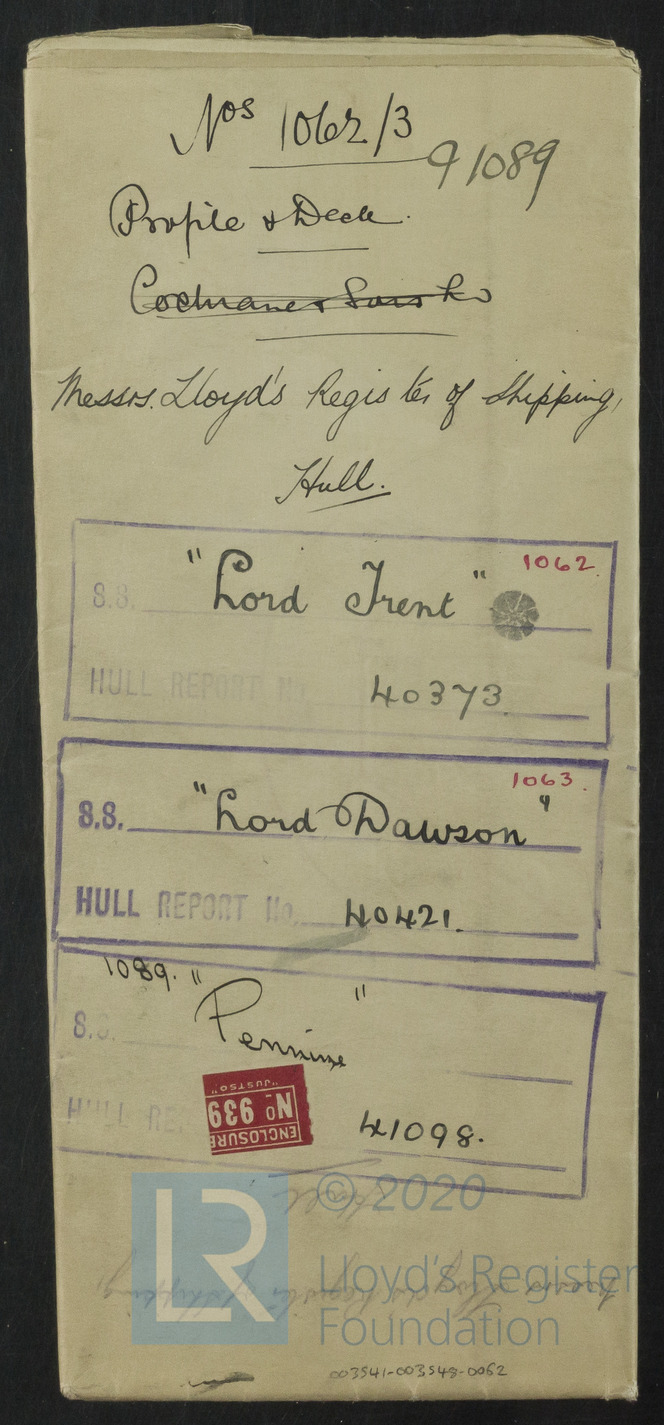 Nos 1062/3
91089
Profile & Deck.
Cochrane & Sons Ld
Messrs. Lloyd's Register of Shipping,
Hull.
1062
S.S. "Lord Trent"
HULL REPORT No. 40373.
1063.
S.S. "Lord Dawson"
HULL REPORT No. 40421.
1089. "Pennine"
S.S.
HULL RE 41098.
ENCLOSURE
No 939
"JUSTSO"
Hull
© 2020
LR
Lloyd's Register
Foundation
Messrs Lloyd's Register of Shipping
003541-003548-0062